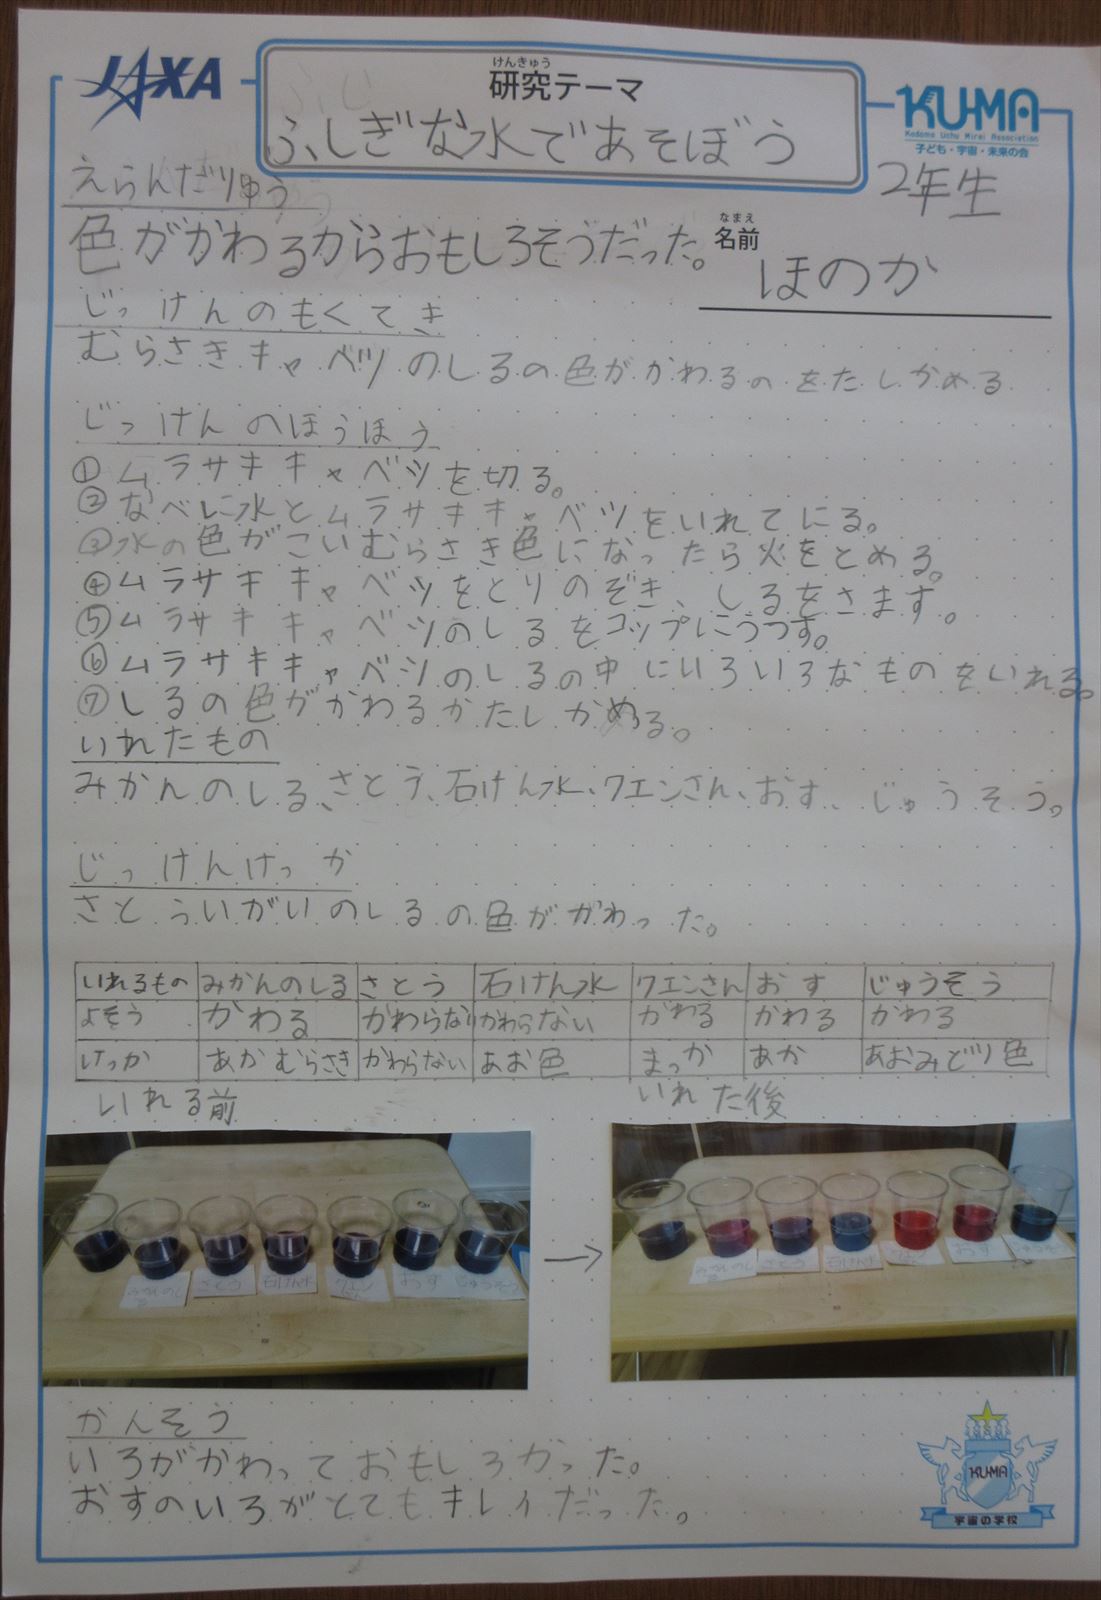 JAXA
けんきゅう
研究テーマ
ふしぎな水であそぼう
KU-MA
Kodomo Uchu Mirai Association
子ども・宇宙・未来の会
2年生
えらんだりゆう
色がかわるからおもしろそうだった。
なまえ
名前
ほのか
じっけんのもくてき
むらさきキャベツのしるの色がかわるのをたしかめる
じっけんのほうほう
①ムラサキキャベツを切る。
②なべに水とムラサキキャベツをいれてにる。
③水の色がこいむらさき色になったら火をとめる。
④ムラサキキャベツをとりのぞき、しるをさます。
⑤ムラサキキャベツのしるをコップにうつす。
⑥ムラサキキャベツのしるの中にいろいろなものをいれる。
⑦しるの色がかわるかたしかめる。
いれたもの
みかんのしる、さとう、石けん水、クエンさん、おす、じゅうそう。
じっけんけっか
さとういがいのしるの色ががわった。
いれるもの みかんのしる さとう 石けん水 クエンさん おす じゅうそう
よそう かわる かわらない かわらない かわる かわる かわる
けっか あかむらさき かわらない あお色 まっか あか あおみどり色
いれる前
いれた後
さとう 石けん水 おす じゅうそう
→
さとう 石けん水 おす じゅうそう
かんそう
いろがかわっておもしろかった。
おすのいろがとてもキレイだった。
KU-MA
宇宙の学校